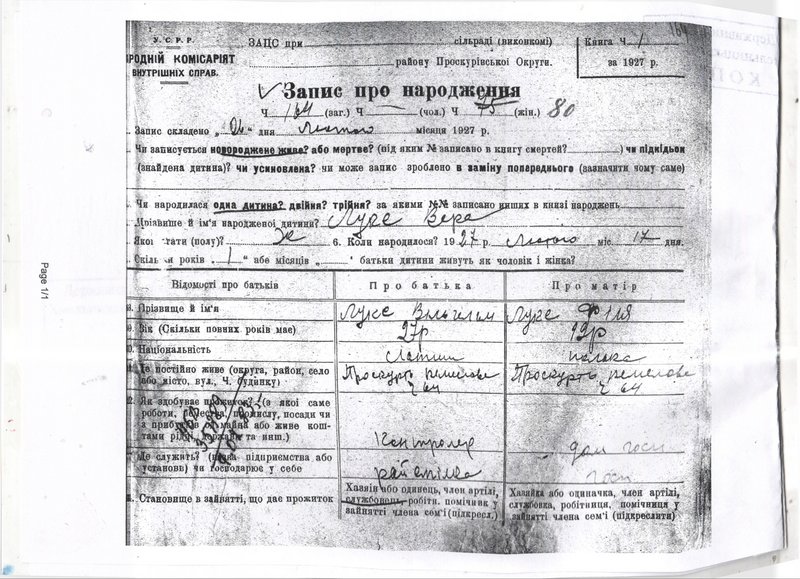 У.С.Р.Р.
РОДНІЙ КОМІСАРІЯТ
ВНУТРІШНІХ СПРАВ.
ЗАЦС при сільраді (виконкомі)
району Проскурівської Округи.
Книга Ч. 1
за 1927 р.
164
Запис про народження
Ч 164 (заг.) Ч — (чол.) Ч 75 (жін.) 80
Запис складено „26" дня Лютого місяця 1927 р.
Чи записується новороджене живе? або мертве? (під яким № записано в книгу смертей?) чи підкідьок
(знайдена дитина)? чи усиновлена? чи може запис зроблено в заміну попереднього (зазначити чому саме)
Чи народилася одна дитина? двійня? трійня? за якими №№ записано инших в книзі народжень
Прізвище й ім'я народженої дитини? Лукс Вера
Якої тати (полу)? Ж 6. Коли народилося? 1927 р. Лютого міс. 17 дня.
Скільки років „1" або місяців „ " батьки дитини живуть як чоловік і жінка?
Відомості про батьків
Про батька
Про матір
Прізвище й ім'я
Лукс
Лукс
Вік (Скільки повних років має)
27р
19р
Національність
Латиш
полька
Де постійно живе (округа, район, село
або місто, вул., Ч. будинку)
Проскурів
Ч 64
Проскурів
Ч 64
Як здобуває прожиток? (з якої саме
роботи, ремества, промислу, посади чи
з прибутків від майна або живе кош-
тами рідні, держави та инш.)
дом госп
Де служить? (назва підприємства або
установи) чи господарює у себе
райспілка
госп
Становище в зайнятті, що дає прожиток
Хазяїн або одинець, член артілі,
службовець робітн. помічник у
зайнятті члена сем'ї (підкресл.)
Хазяйка або одиначка, член артілі,
службовка, робітниця, помічниця у
зайнятті члена сем'ї (підкреслити)
Page 1/1